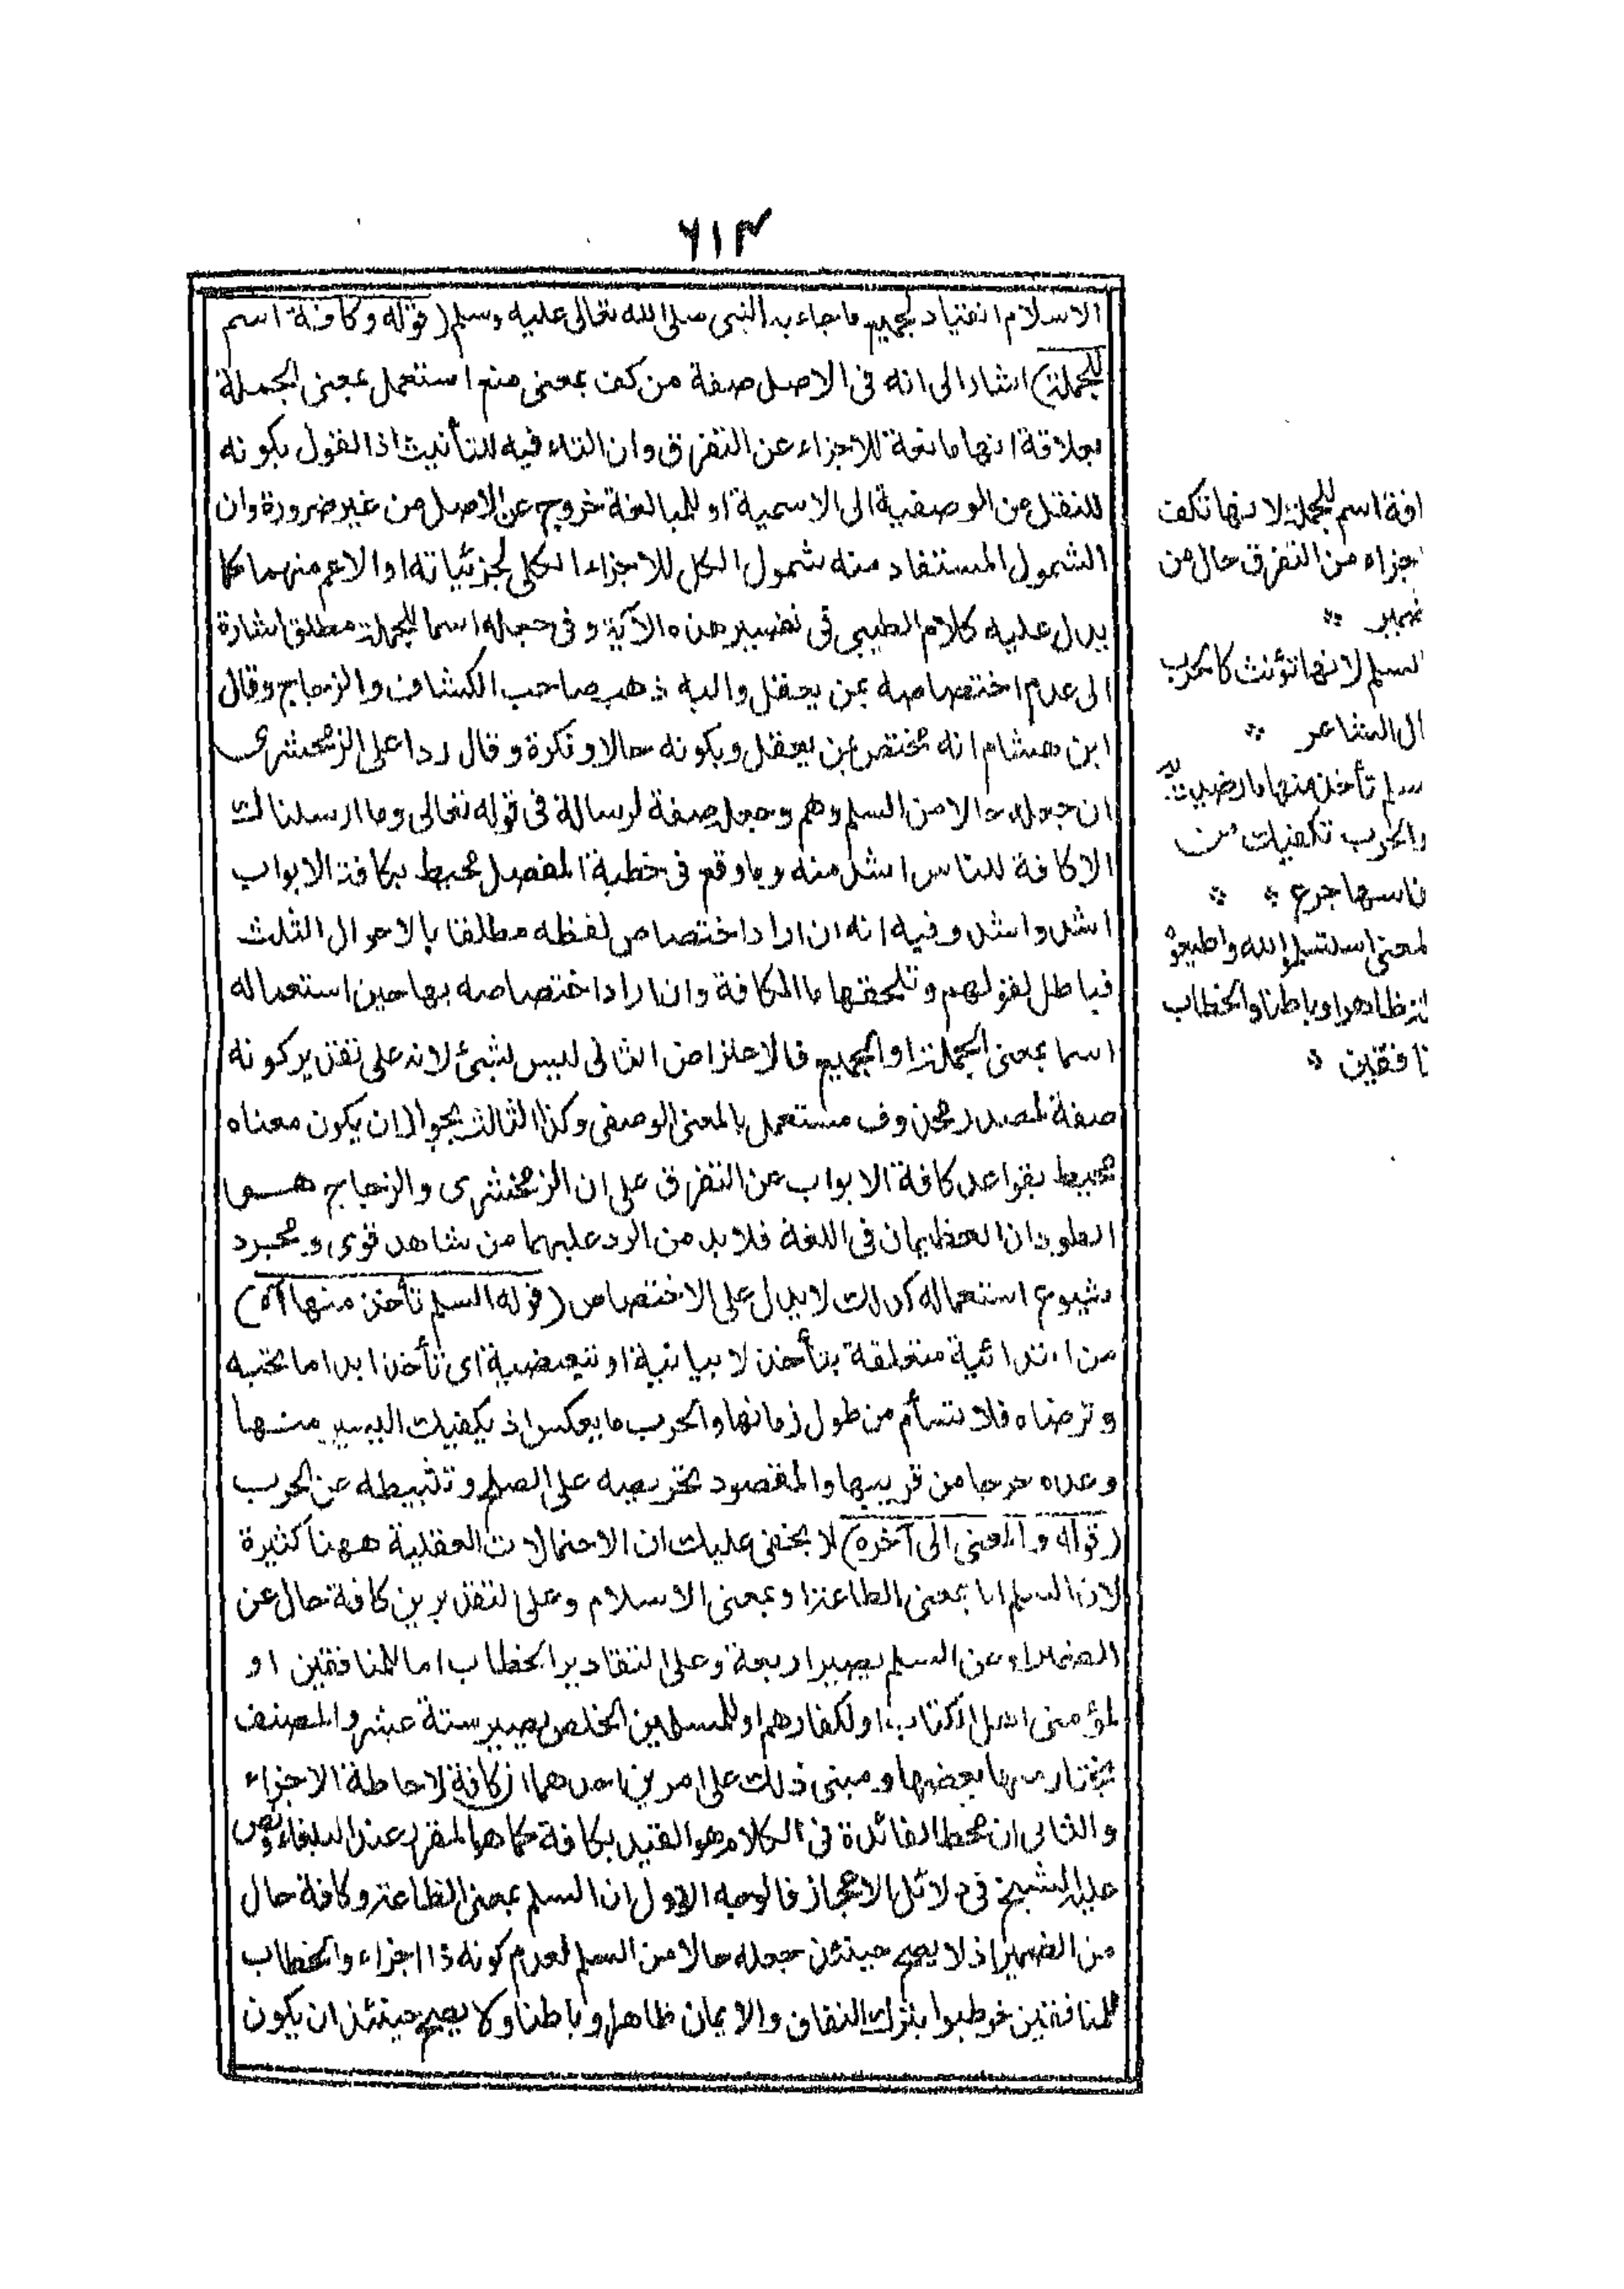 ٦١٣
الاسلام انقياد لجميع ما جاء به النبى صلى الله تعالى عليه وسلم (قوله وكافة اسم
للجملة) اشار الى انه فى الاصل صفة من كف بمعنى منع استعمل بمعنى الجملة
بعلاقة انها مانعة للاجزاء عن التفرق وان التاء فيه للتأنيث اذ القول بكونه
للنقل من الوصفية الى الاسمية او للمبالغة خروج عن الاصل من غير ضرورة وان
الشمول المستفاد منه شمول الكل للاجزاء او الكلى لجزئياته او الاعم منهما كما
يدل عليه كلام الطيبى فى تفسير هذه الآية وفى جعله اسما للجملة مطلق اشارة
الى عدم اختصاصه بمن يعقل واليه ذهب صاحب الكشاف والزجاج وقال
ابن هشام انه مختص بمن يعقل وبكونه حالا ونكرة وقال ردا على الزمخشرى
ان جعله حالا من السلم وهم وجعله صفة لرسالة فى قوله تعالى وما ارسلناك
الا كافة للناس اشد منه وما وقع فى خطبة المفصل محيط بكافة الابواب
اشد واشد وفيه انه ان اراد اختصاص لفظه مطلقا بالاحوال الثلث
فباطل لقولهم وتلحقها ما الكافة وان اراد اختصاصه بها حين استعماله
اسما بمعنى الجملة او الجميع فالاعتراض الثانى ليس بشئ لانه على تقدير كونه
صفة لمصدر محذوف مستعمل بالمعنى الوصفى وكذا الثالث بجواز ان يكون معناه
محيط بقواعد كافة الابواب عن التفرق على ان الزمخشرى والزجاج هما
العلودان العظيمان فى اللغة فلا بد من الرد عليهما من شاهد قوى ومجرد
شيوع استعماله كذلك لا يدل على الاختصاص (قوله السلم تأخذ منها آه)
من ابتدائية متعلقة بتأخذ لا بيانية او تبعيضية اى تأخذ ابدا ما تحبه
وترضاه فلا تسأم من طول زمانها والحرب ما بعكس اذ يكفيك اليسير منها
وعداه حرجا من قربيها والمقصود تحريصه على الصلح وتثبيطه عن الحرب
(قوله والمعنى الى آخره) لا يخفى عليك ان الاحتمالات العقلية ههنا كثيرة
لان السلم اما بمعنى الطاعة او بمعنى الاسلام وعلى التقديرين كافة حال عن
الضمير او عن السلم يصير اربعة وعلى التقادير الخطاب اما للمنافقين او
لمؤمنى اهل الكتاب او لكفارهم او للمسلمين الخلص يصير ستة عشر والمصنف
يختار منها بعضها ومبنى ذلك على امرين احدهما ان كافة لاحاطة الاجزاء
والثانى ان محط الفائدة فى الكلام هو القيد بكافة كما هو المقرر عند البلغاء ونص
عليه الشيخ فى دلائل الاعجاز فالوجه الاول ان السلم بمعنى الطاعة وكافة حال
من الضمير اذ لا يصح حينئذ جعله حالا من السلم لعدم كونه ذا اجزاء والخطاب
للمنافقين خوطبوا بترك النفاق والايمان ظاهرا وباطنا ولا يصح حينئذ ان يكون
افة اسم للجملة لانها تكف
اجزاء من التفرق حال من
ضمير
السلم لانها تؤنث كالحرب
ال الشاعر
سلم تأخذ منها ما رضيت به
والحرب تكفيك من
نفاسها جرع
لمعنى استسلموا لله واطيعوا
ظاهرا وباطنا والخطاب
نافقين